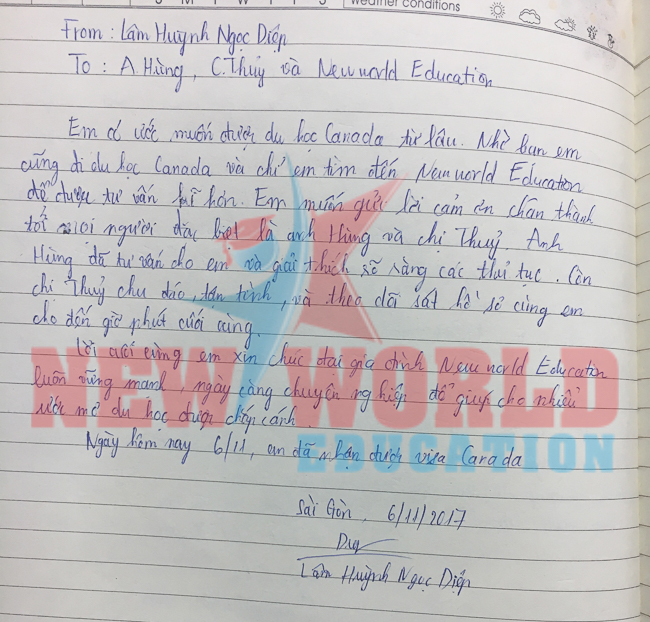 weather conditions
From : Lâm Huỳnh Ngọc Diệp
To : A Hùng, C.Thuỷ và New world Education
Em có ước muốn được du học Canada từ lâu. Nhờ bạn em
cũng đi du học Canada và chỉ em tìm đến New world Education
để được tư vấn kĩ hơn. Em muốn gửi lời cảm ơn chân thành
tới mọi người đặc biệt là anh Hùng và chị Thuỷ. Anh
Hùng đã tư vấn cho em và giải thích rõ ràng các thủ tục. Còn
chị Thuỷ chu đáo, tận tình, và theo dõi sát hồ sơ cùng em
cho đến giờ phút cuối cùng.
Lời cuối cùng em xin chúc đại gia đình New world Education
luôn vững mạnh, ngày càng chuyên nghiệp để giúp cho nhiều
ước mơ du học được chắp cánh.
Ngày hôm nay 6/11, em đã nhận được visa Canada
NEW WORLD
EDUCATION
Sài Gòn, 6/11/2017
Lâm Huỳnh Ngọc Diệp